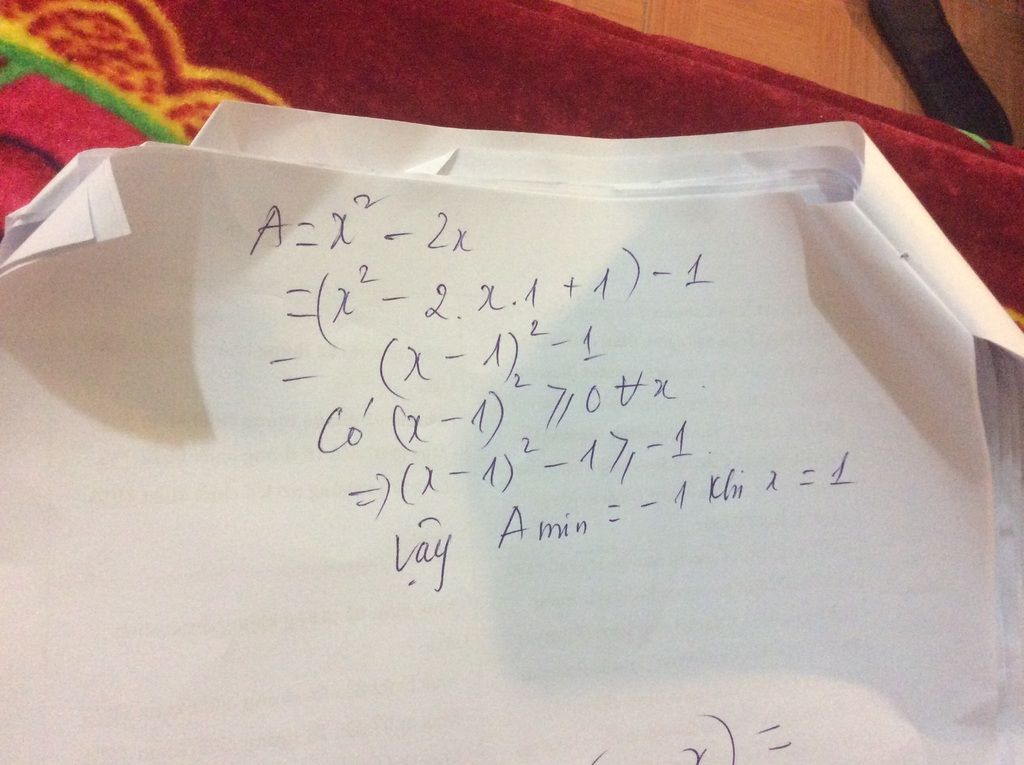 A = x² - 2x
= (x² - 2. x . 1 + 1) - 1
= (x - 1)² - 1
Có (x - 1)² ⩾ 0 ∀ x
=> (x - 1)² - 1 ⩾ - 1
Vậy A min = - 1 khi x = 1
x) =